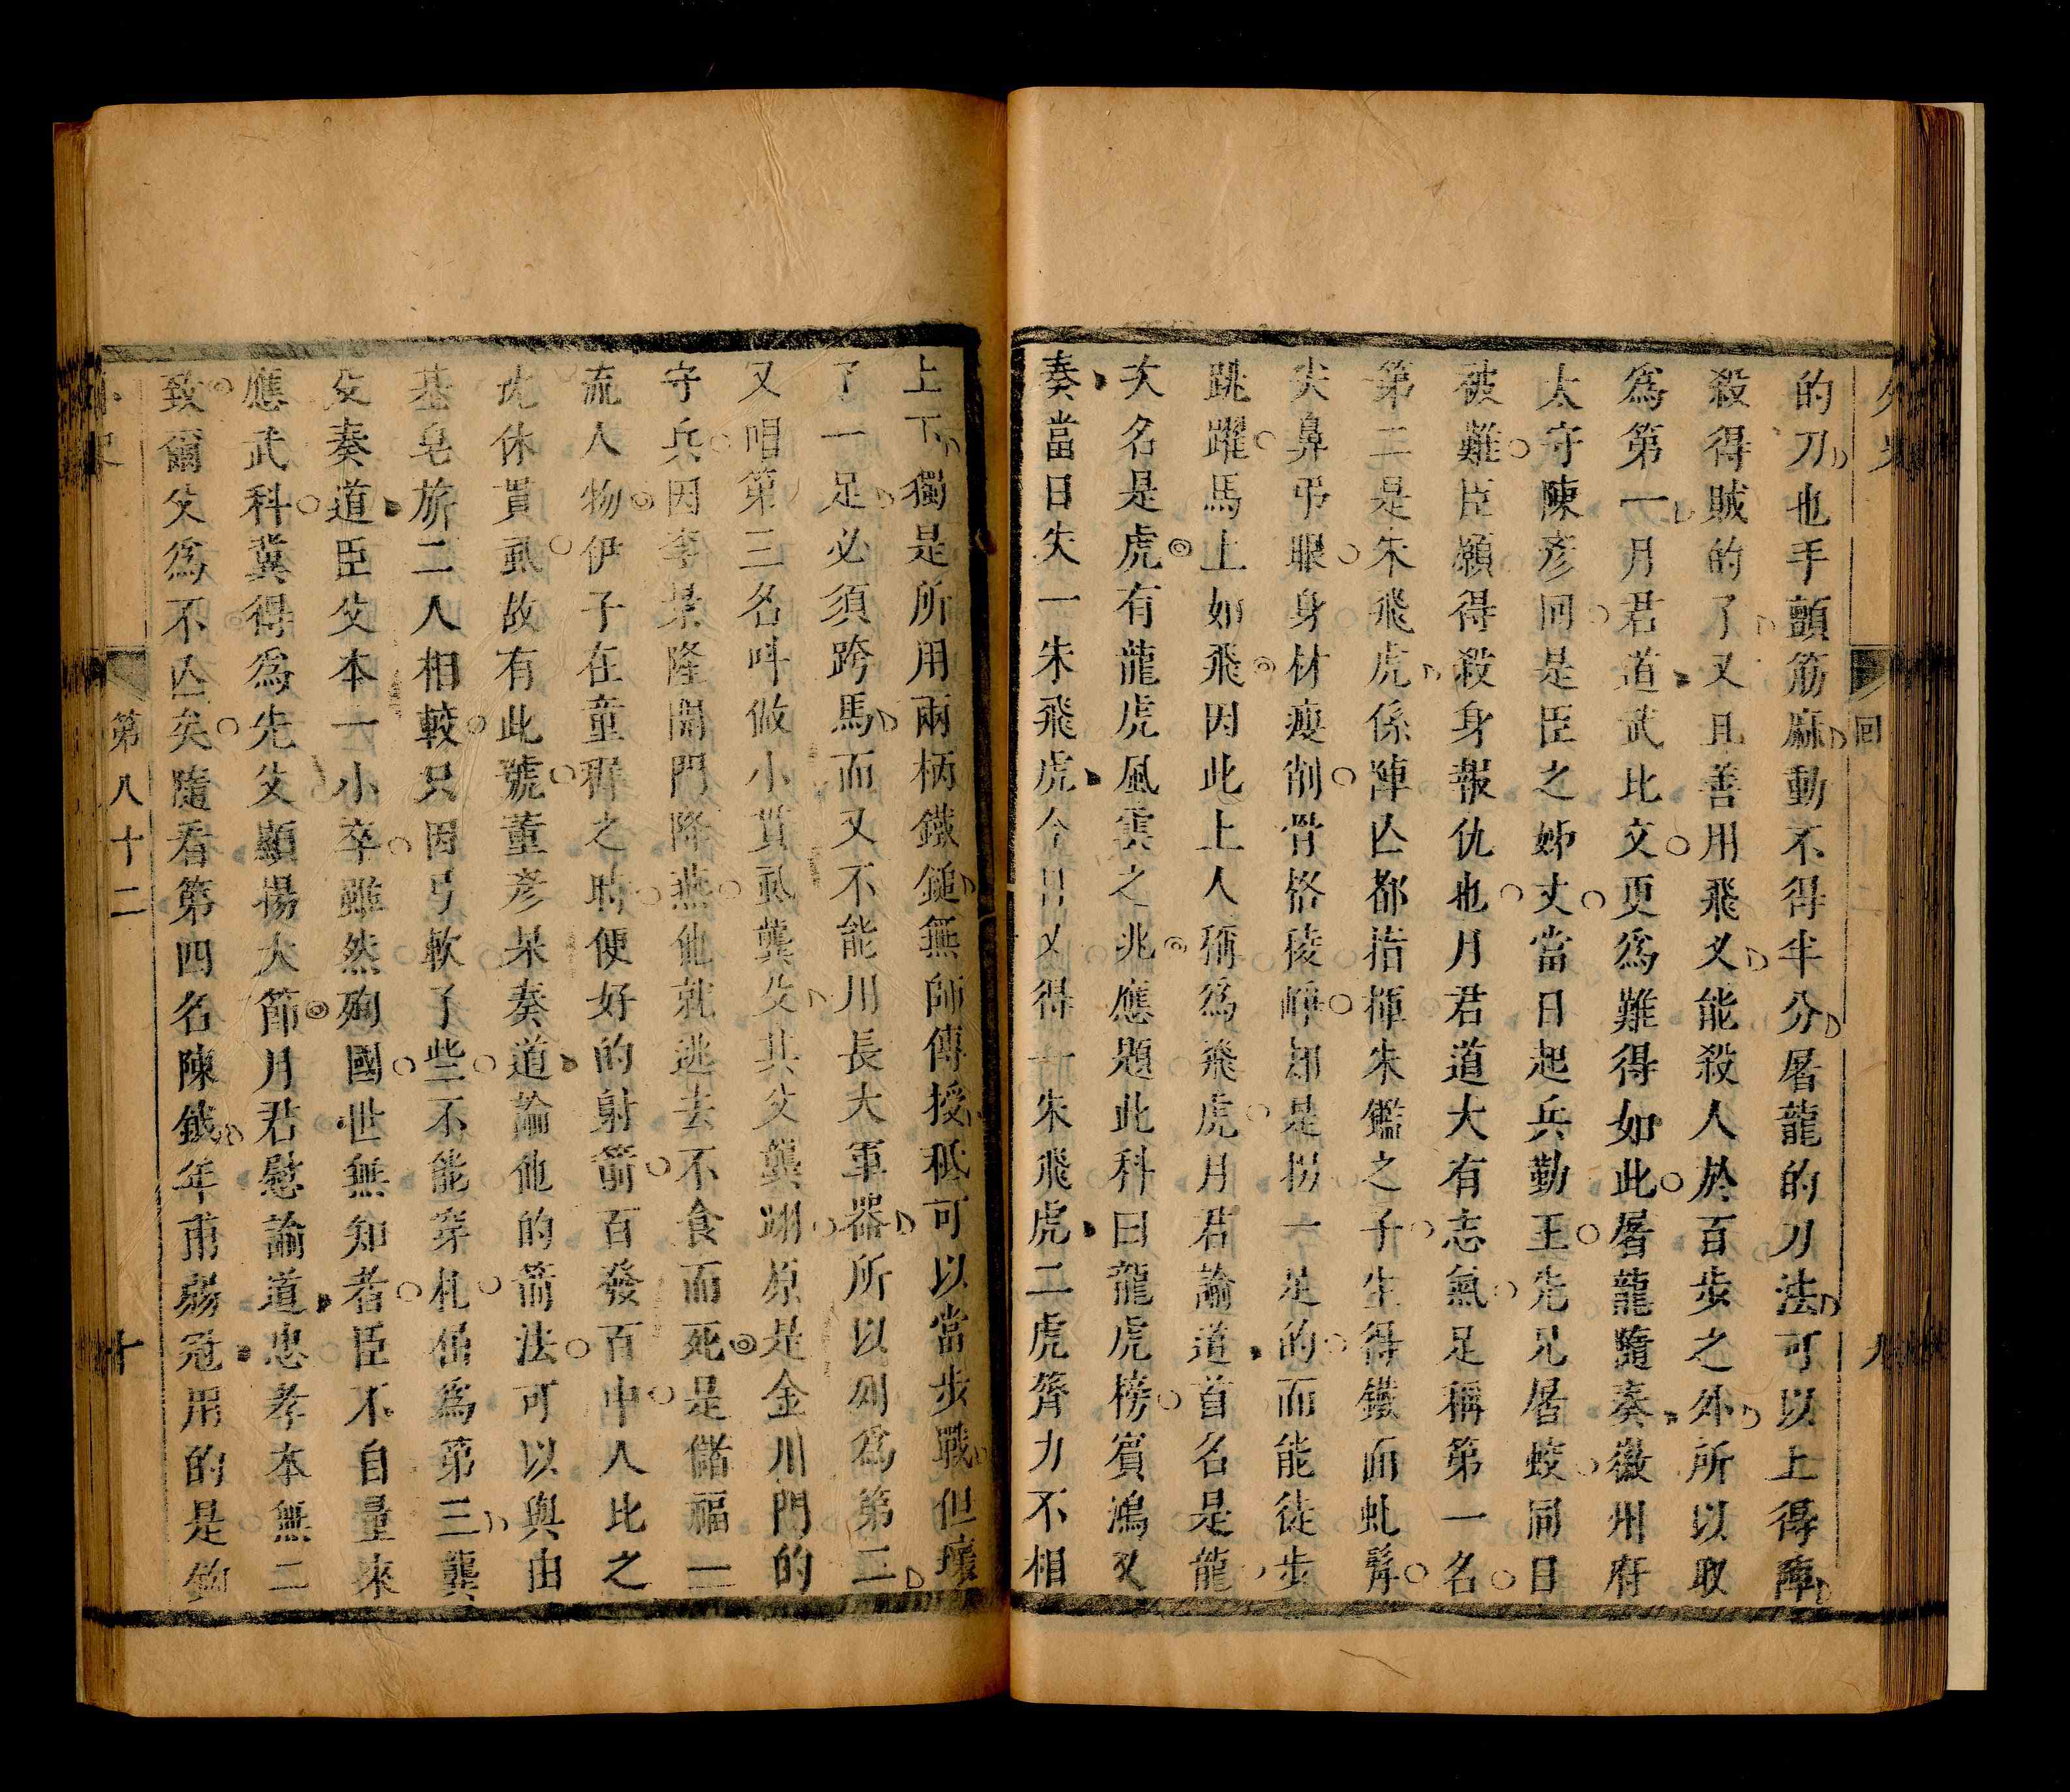 外史
回
九
的刀也手顫筋麻動不得半分屠龍的刀法可以上得陣
殺得賊的了又且善用飛叉能殺人於百步之外所以取
爲第一月君道武比文更爲難得如此屠龍隨奏徽州府
太守陳彥回是臣之姊丈當日起兵勤王先兄屠蛟同日
被難臣願得殺身報仇也月君道大有志氣足稱第一名
第二是朱飛虎係陣亾都指揮朱鑑之子生得鐵面虬髯
尖鼻弔眼身材瘦削骨格稜崢却是拐一足的而能徒步
跳躍馬上如飛因此上人稱爲飛虎月君諭道首名是龍
次名是虎有龍虎風雲之兆應題此科曰龍虎榜賓鴻又
奏當日失一朱飛虎今日又得一朱飛虎二虎膂力不相
上下獨是所用兩柄鐵鎚無師傳授秪可以當步戰但壞
了一足必須跨馬而又不能用長大軍器所以列爲第二
又唱第三名呌做小貫虱龔㸒其父龔翊原是金川門的
守兵因李景隆開門降燕他就逃去不食而死是儲福一
流人物伊子在童稚之時便好的射箭百發百中人比之
沈休貫虱故有此號董彥杲奏道論他的箭法可以與由
基皂旂二人相較只因弓軟了些不能穿札屈爲第三龔
㸒奏道臣父本一小卒雖然殉國世無知者臣不自量來
應武科冀得爲先父顯揚大節月君慰諭道忠孝本無二
致爾父爲不亾矣隨看第四名陳鉞年甫弱冠用的是鉤
外史
第八十二
十